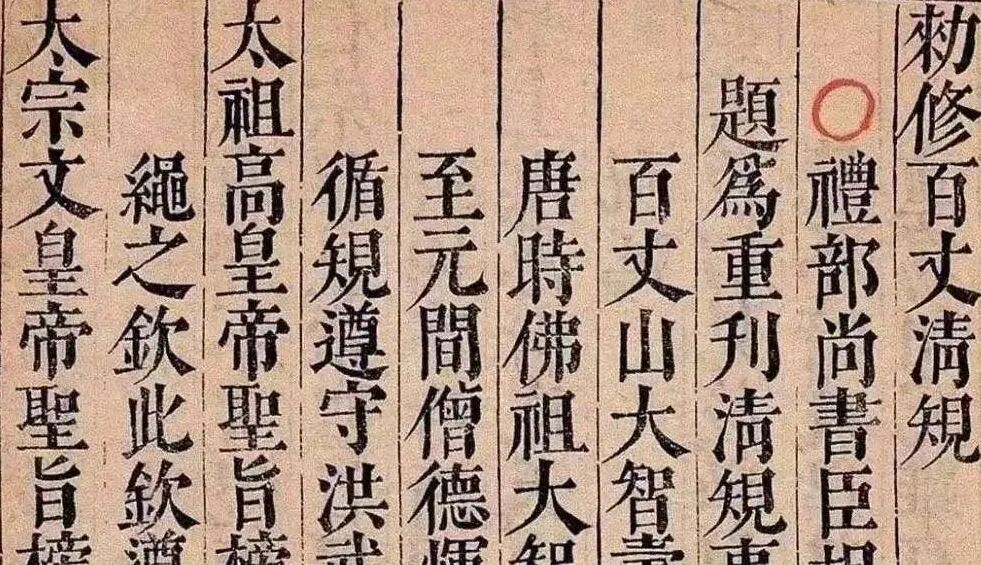 勑修百丈淸規
禮部尚書臣胡
題爲重刊淸規事
百丈山大智壽
唐時佛祖大智
至元間僧德煇
循規遵守洪武
太祖高皇帝聖旨榜
繩之欽此欽遵
太宗文皇帝聖旨榜